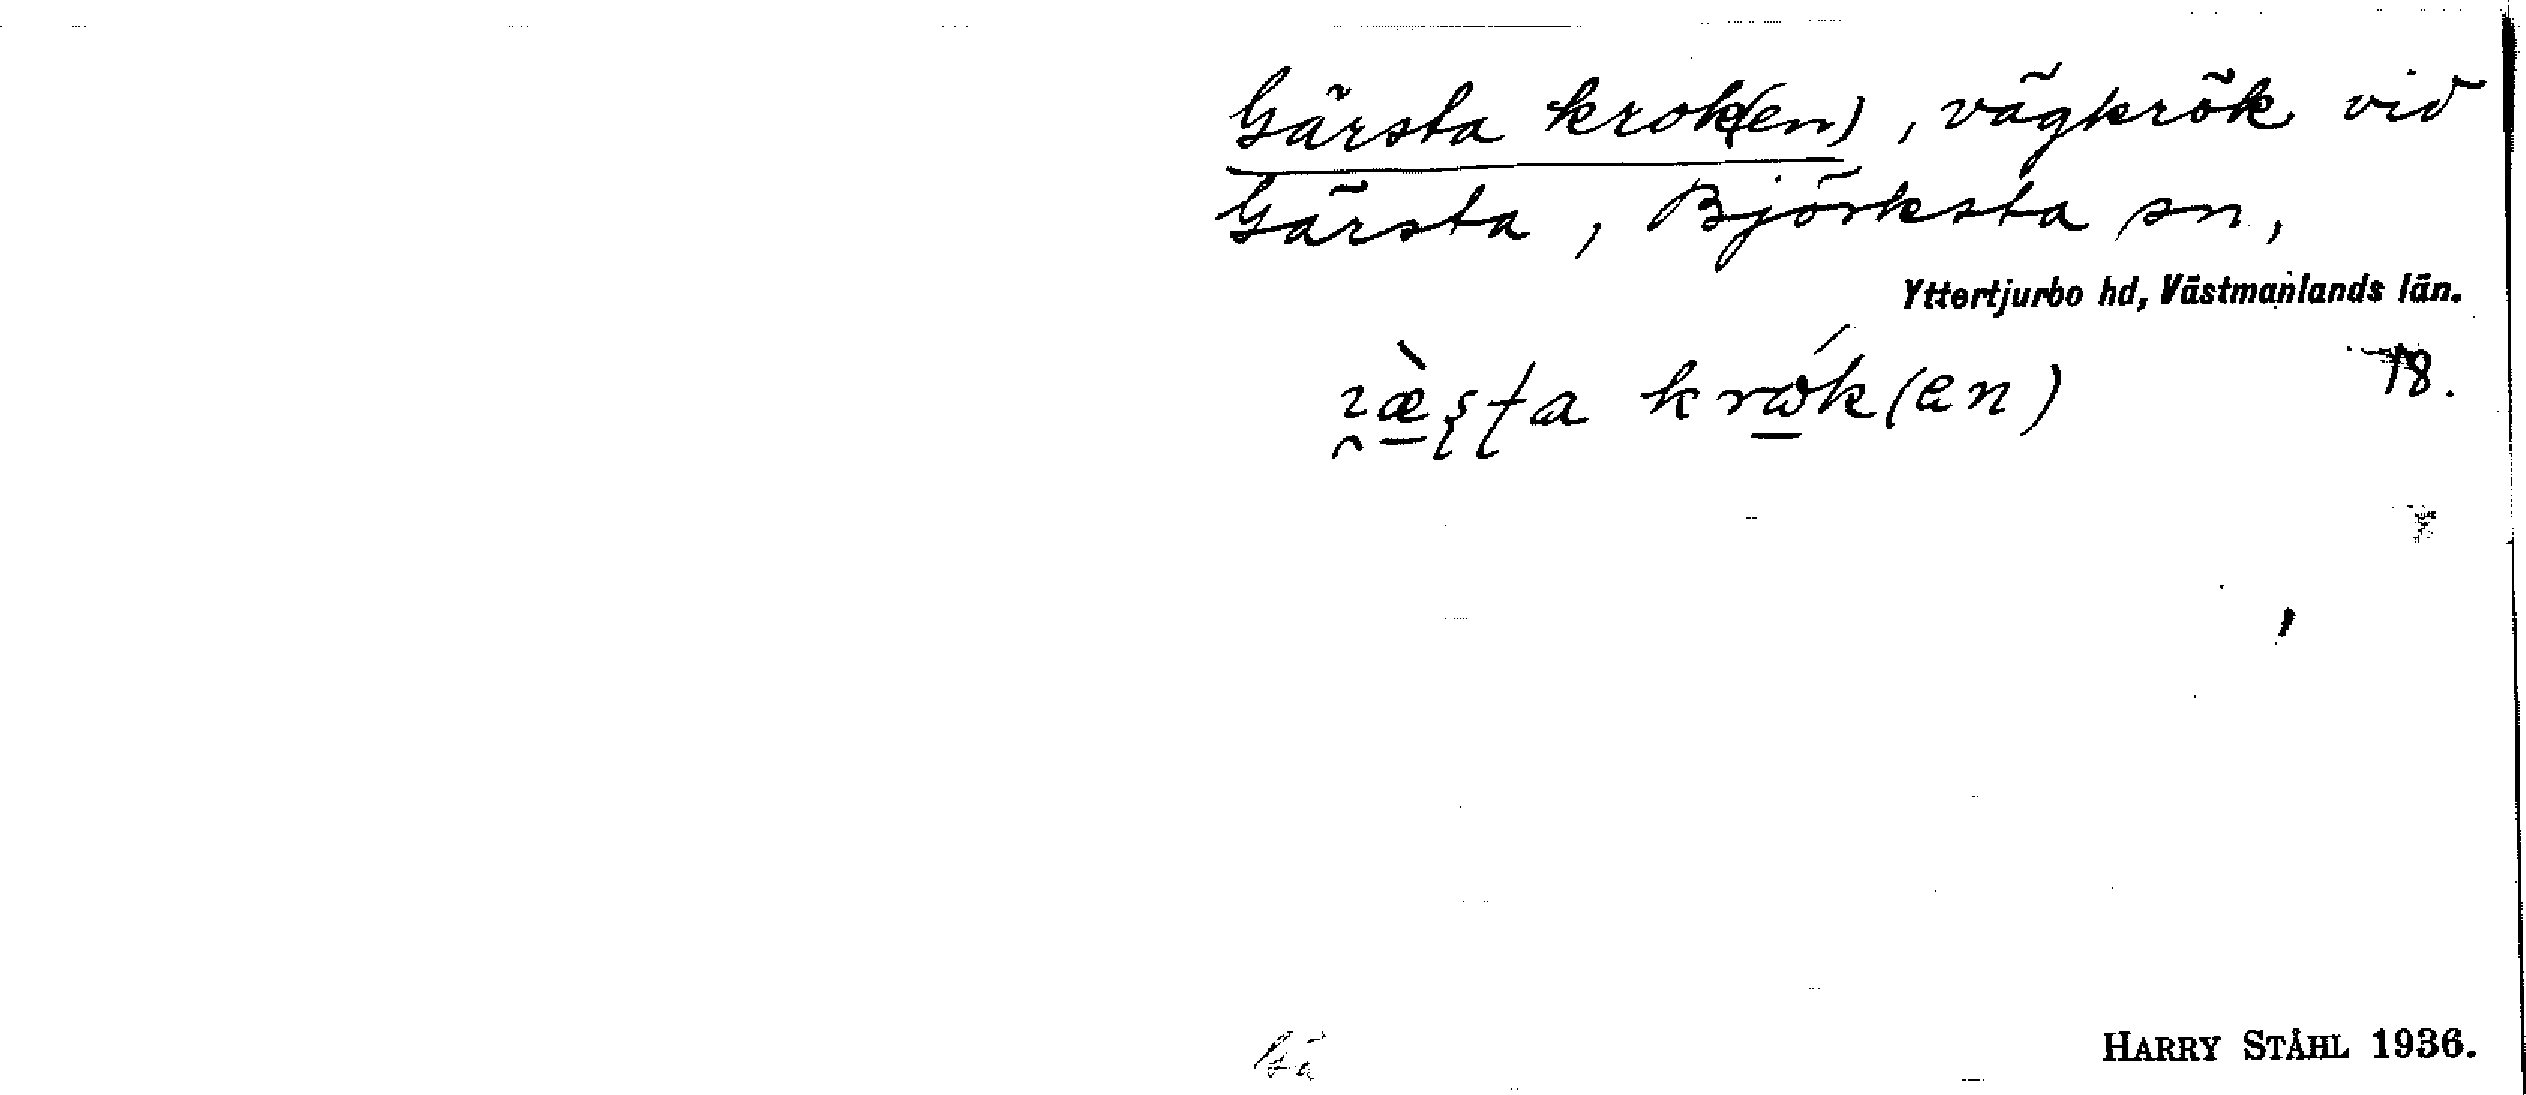 Gärsta krok(en), vägkrök vid
Gärsta, Björksta sn,
Yttertjurbo hd, Västmanlands län.
krώk(en) 18.
Gä
HARRY STÅHL 1936.